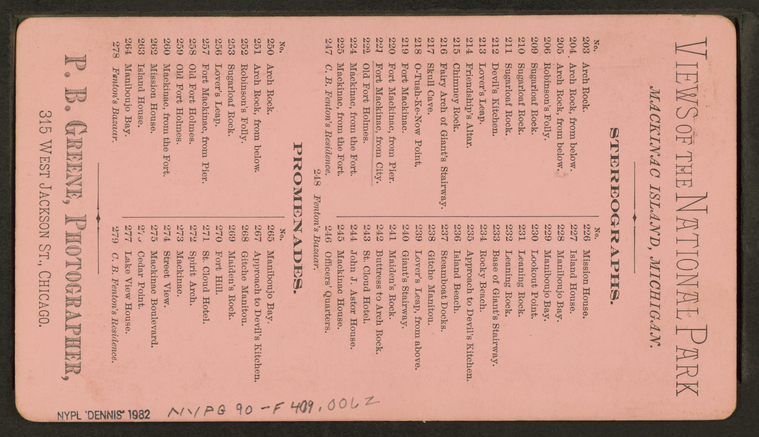 VIEWS OF THE NATIONAL PARK
MACKINAC ISLAND, MICHIGAN.
STEREOGRAPHS.
No.
203 Arch Rock.
204 Arch Rock, from below.
205 Arch Rock, from below.
206 Robinson's Folly.
209 Sugarloaf Rock.
210 Sugarloaf Rock.
211 Sugarloaf Rock.
212 Devil's Kitchen.
213 Lover's Leap.
214 Friendship's Altar.
215 Chimney Rock.
216 Fairy Arch of Giant's Stairway.
217 Skull Cave.
218 O-Tush-Ke-Now Point.
219 Fort Mackinac.
220 Fort Mackinac, from Pier.
221 Fort Mackinac, from City.
222 Old Fort Holmes.
224 Mackinac, from the Fort.
225 Mackinac, from the Fort.
247 C. B. Fenton's Residence.
No.
226 Mission House.
227 Island House.
228 Manibonjo Bay.
229 Manibonjo Bay.
230 Lookout Point.
231 Leaning Rock.
232 Leaning Rock.
233 Base of Giant's Stairway.
234 Rocky Beach.
235 Approach to Devil's Kitchen.
236 Island Beach.
237 Steamboat Docks.
238 Gitche Manitou.
239 Lover's Leap, from above.
240 Giant's Stairway.
241 Maiden's Rock.
242 Buttress to Arch Rock.
243 St. Cloud Hotel.
244 John J. Astor House.
245 Mackinac House.
246 Officers' Quarters.
248 Fenton's Bazaar.
PROMENADES.
No.
250 Arch Rock.
251 Arch Rock, from below.
252 Robinson's Folly.
253 Sugarloaf Rock.
256 Lover's Leap.
257 Fort Mackinac, from Pier.
258 Old Fort Holmes.
259 Old Fort Holmes.
260 Mackinac, from the Fort.
262 Mission House.
263 Island House.
264 Manibonjo Bay.
278 Fenton's Bazaar.
No.
265 Manibonjo Bay.
267 Approach to Devil's Kitchen.
268 Gitche Manitou.
269 Maiden's Rock.
270 Fort Hill.
271 St. Cloud Hotel.
272 Spirit Arch.
273 Mackinac.
274 Street View.
275 Mackinac Boulevard.
Cedar Point.
277 Lake View House.
279 C. B. Fenton's Residence.
P. B. GREENE, PHOTOGRAPHER,
315 WEST JACKSON ST., CHICAGO.
NYPL 'DENNIS' 1982
NYPG 90-F409.0062